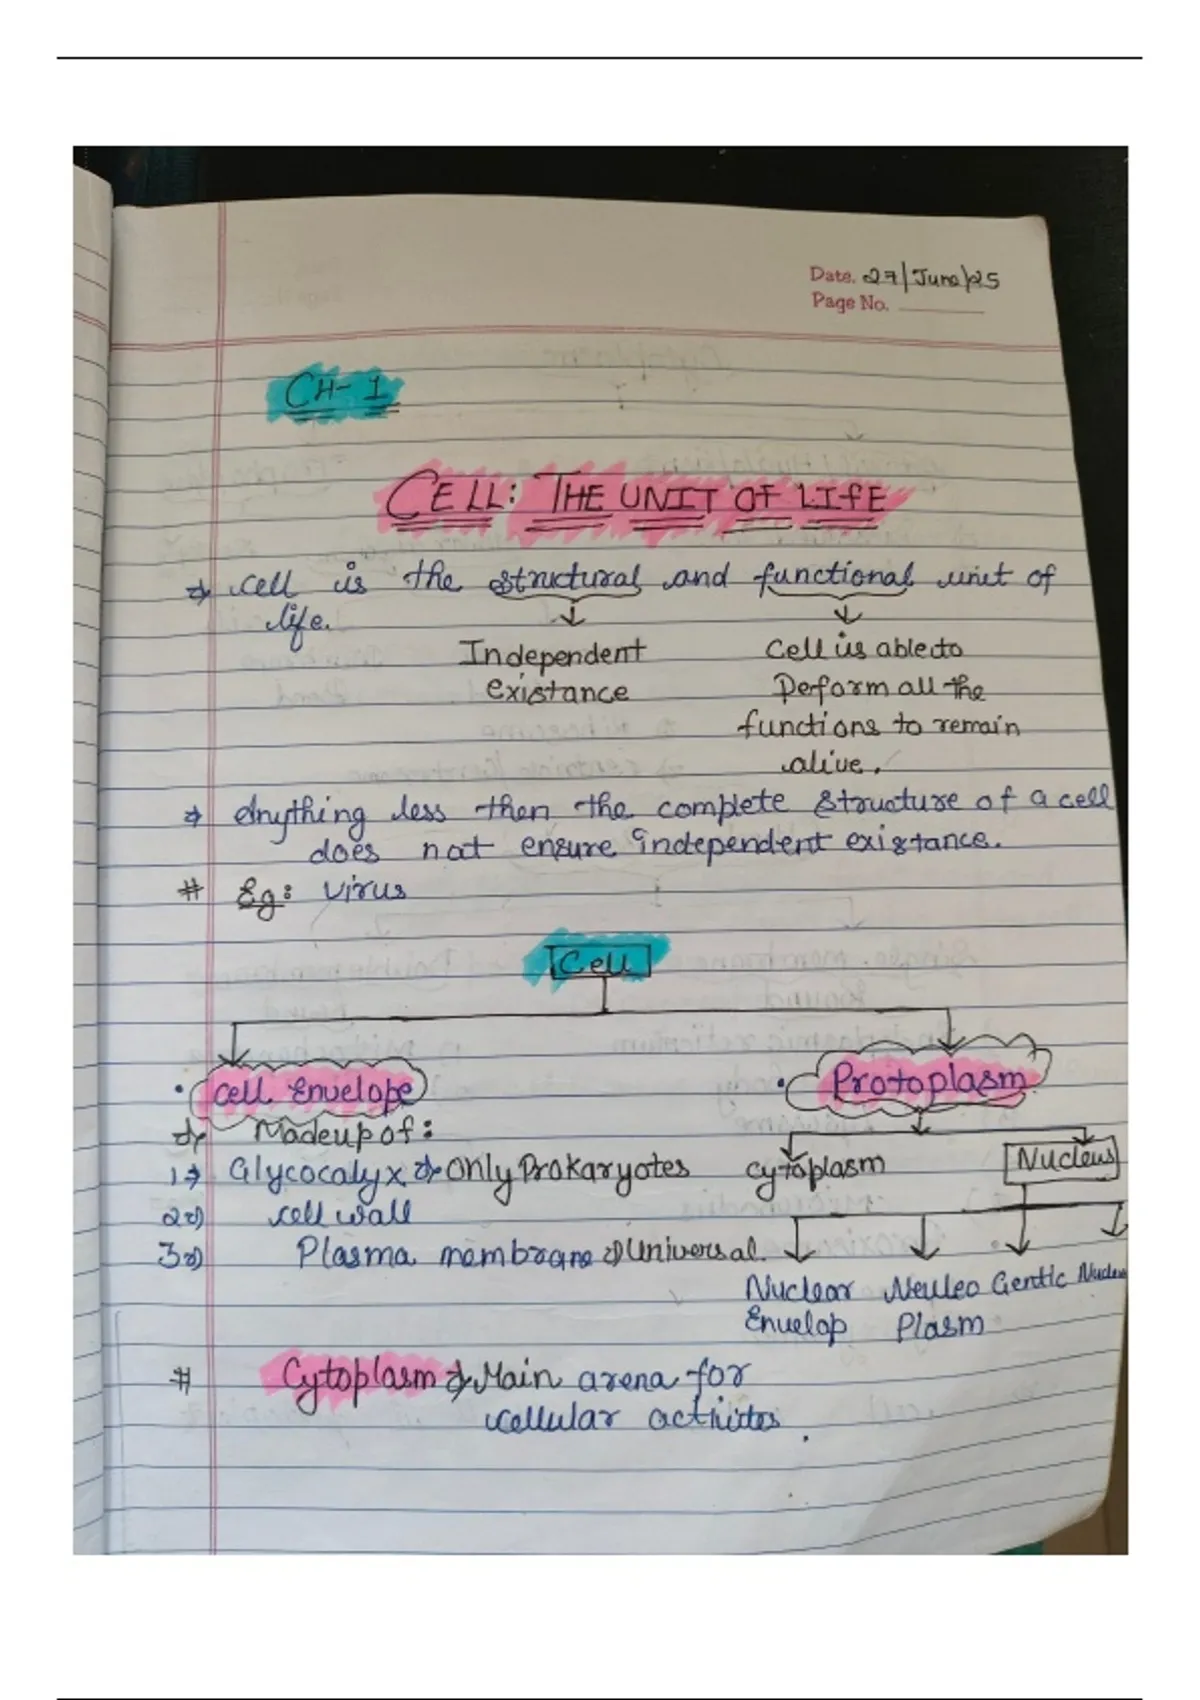 Date. 27/June/25
Page No.
CH-1
CELL: THE UNIT OF LIFE
⇒ cell is the structural and functional unit of
life.
Independent
existance
Cell is able to
Perform all the
functions to remain
alive.
⇒ Anything less then the complete structure of a cell
does not ensure independent existance.
# Eg: virus
Cell
• Cell Envelope
• Protoplasm
⇒ Madeup of:
1⇒ Glycocalyx ⇒ Only Prokaryotes
2⇒ cell wall
3⇒ Plasma membrane ⇒ Universal.
cytoplasm
Nucleus
Nuclear
Envelop
Neuleo
Plasm
Gentic
# Cytoplasm ⇒ Main arena for
cellular activites.